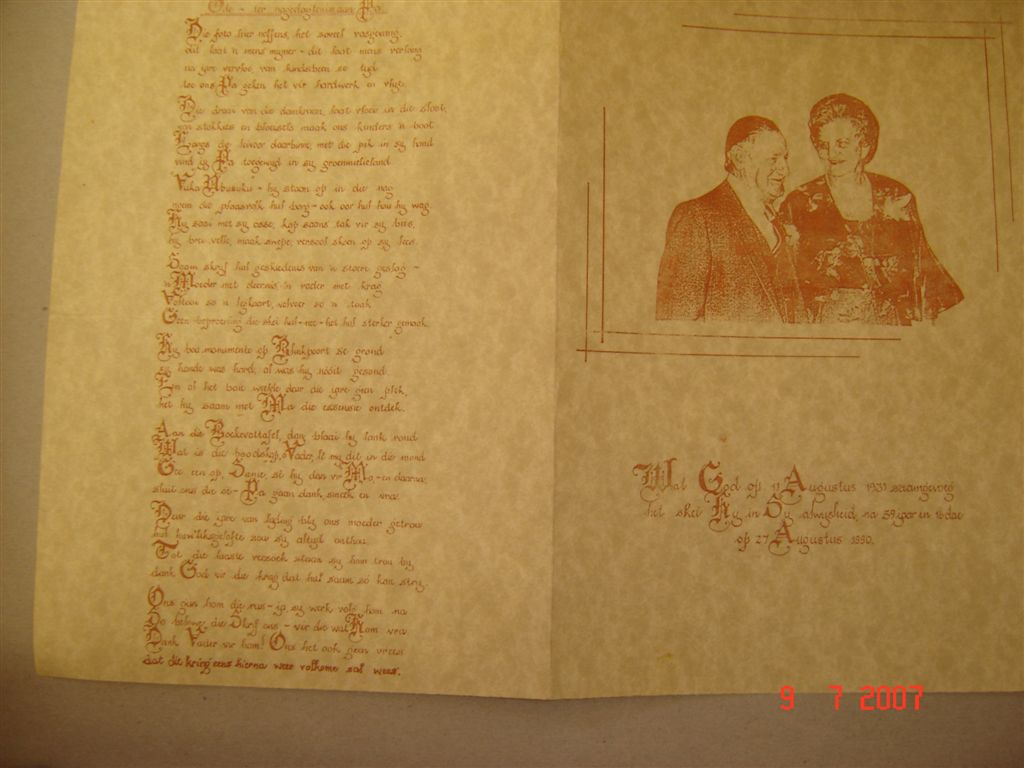 Ode - ter nagedagtenis aan Pa
Die foto hier neffens, het soveel vasgevang.
dit laat 'n mens mymer - dit laat mens verlang
na jare vervloë, van kindsbeen se tyd
toe ons Pa geken het vir hardwerk en vlyt.
Die draai van die damkraan, laat vloei in die sloot,
stokkies en maak ons kinders 'n boot
daarbinne, met die pik in sy hand
vind jy Pa toegewyd in sy groenmielieland
Vuka Ubusuku - hy staan op in die nag
noem die plaasvolk hul borg - ook oor hul hou hy wag.
Hy saai met sy osse, kap saans tak vir sy bees,
hy brei velle, maak swepe, versool skoen op sy lees.
Saam skryf hul geskiedenis van 'n stoere geslag -
'n Moeder met deernis 'n vader met krag
so 'n legkaart, so 'n taak
Geen beproewing die skei hul - nee - het hul sterker gemaak
Hy bou monumente op Blinkpoort se grond
sy hande was hard, al was hy nóóit gesond.
En al het baie weelde deur die jare geen plek,
het hy saam met Ma die essensie ontdek.
Aan die Boekevattafel, dan blaai hy lank rond
Wat is die boodskap, Vader, lê my dit in die mond
Gee een op, Sanie, sê hy dan vir Mo, - en daarna
sluit ons die oë - Pa gaan dank, smeek en vra.
Deur die jare van lyding bly ons moeder getrou
hul huweliksgelofte sou sy altyd onthou.
Tot die laaste versoek staan sy hom trou by,
dank God vir die krag dat hul saam só kon stry.
Ons gun hom die rus - ja sy werk volg hom na
So belowe die Skrif ons - vir die wat Hom vra
Dank Vader vir hom! Ons het ook geen vrees
dat die kring eens hierna weer volkome sal wees.
Wat God op 11 Augustus 1931 saamgevoeg
het skei Hy in Sy alwysheid, na 59 jaar en 16 dae
op 27 Augustus 1990.
9 7 2007